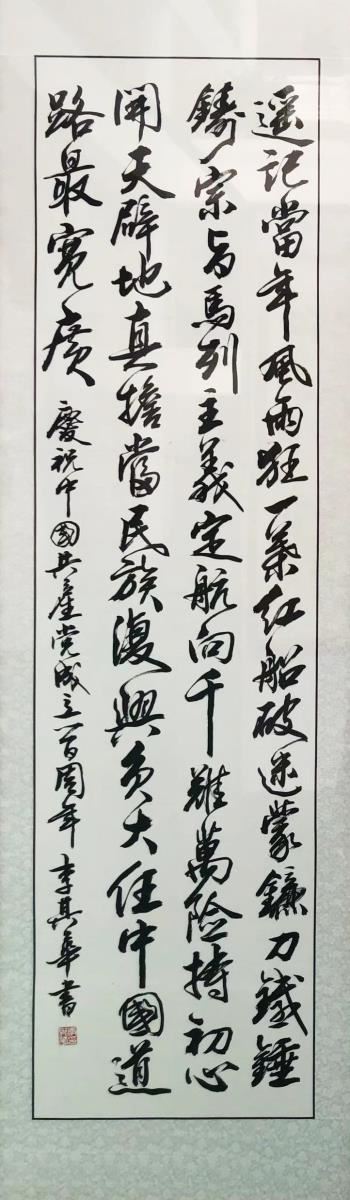 遥记當年風雨狂一葉红船破迷蒙鐮刀鐵錘
鑄宗旨馬列主義定航向千難萬险持初心
開天辟地真擔當民族復興负大任中國道
路最寬廣
慶祝中國共產党成立一百周年 李其華書